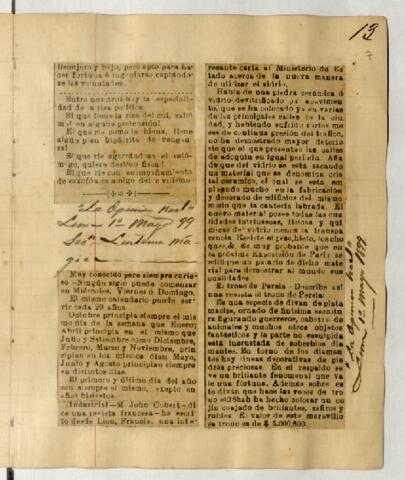 13
7
lisonjero y bajo, pero apto para ha-
cer fortuna é ingeniarse captándo-
se las voluntades.
Entre nosotros hay la especiali-
dad de a risa política.
El que tiene la risa del cui,
mil en alguna pretensión!
El que rie como la hiena, tiene
algún plan hipócrita de vengan-
za!
El que rie agarrándose el estó-
mago, quiere destino fiscal
El que rie con acompañamiento
de es amigo del civilismo
"La Opinion Nacl"
Lima 12 Mayo 99
Secn Linterna má-
gica
Muy conocido pero siempre curio-
so—Ningún siglo puede comenzar
en Miércoles, Viernes ó Domingo.
El mismo calendario puede ser-
vir cada 20 años.
Octubre principia siempre el mis-
mo día de la semana que Enero;
Abril principia en el mismo que
Julio y Setiembre como Diciembre,
Febrero, Marzo y Noviembre, prin-
cipian en los mismos días; Mayo,
Junio y Agosto principian siempre
en distintos días.
El primero y último día del año
son siempre el mismo, excepto en
años bisiestos.
Industrial—M. John Cobert—di-
ce una revista francesa—ha escri-
to desde Lion, Francia, una inte-
resante carta al Ministerio de Es
tado acerca de la nueva manera
de utilizar el vidrio.
Habla de una piedra cerámica ó
vidrio devitrificado para pavimien-
to, que se ha colocado ya en varias
de las principales calles de la ciu-
dad, y habiendo sufrido varios me-
ses de continua presión del tráfico,
no ha demostrado mayor deterio-
rio que el que presentan las calles
de adoquín en igual período. Aña-
de que del vidrio se está sacando
un material que se denomina cris
tal cerámico, el cual se está em-
pleando mucho en la fabricación
y decorado de edificios del mismo
modo que la cantería labrada. El
nuevo material posee todas las cua
lidades intrínsecas, físicas y quí
micas del vidrio menos la transpa
rencia. Resiste el peso, hielo, los cho
ques, & Es muy probable que en
la próxima Exposición de París se
edifique un palacio de dicho mate-
rial para demostrar al mundo sus
cualidades.
El trono de Persia—Describe así
una revista el trono de Persia:
Es una especie de diván de plata
maciza, ornado de finísima escultu
ra figurando guerreros, cabezas de
animales y muchos otros objetos
fantásticos y la parte no esculpida
está incrustada de soberbios dia
mantes. En torno de los diaman-
tes hay líneas decorativas de pie-
dras preciosas. En el respaldo se
ve un brillante fenomenal que va-
le una fortuna. Además sobre es
te diván que hace las veces de tro
no el Shah ha hecho colocar un co
jín cuajado de brillantes, zafiros y
rubíes. El valor de este maravillo
ga trono es de $ 5.000,000.
"La Opinion Nac"
Lima 12 Mayo 1899